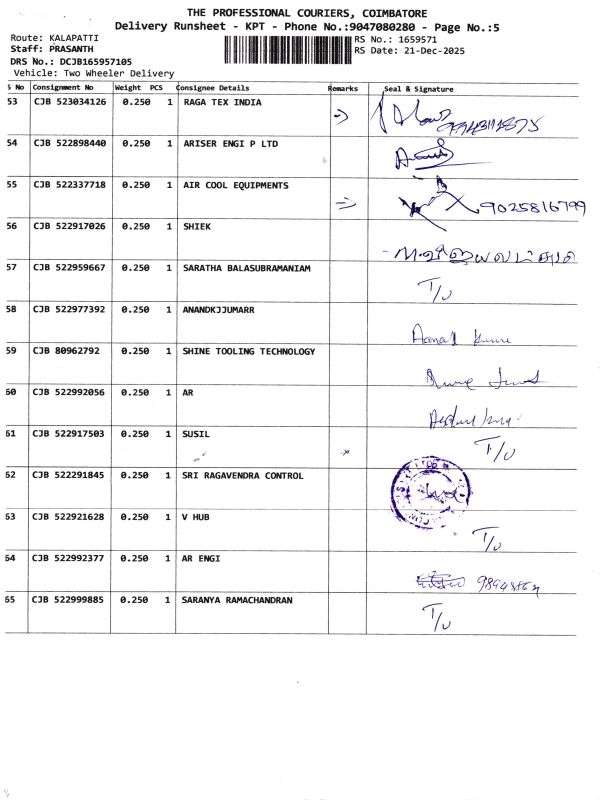 THE PROFESSIONAL COURIERS, COIMBATORE
Delivery Runsheet - KPT - Phone No.:9047080280 - Page No.:5
Route: KALAPATTI
RS No.: 1659571
Staff: PRASANTH
RS Date: 21-Dec-2025
DRS No.: DCJB165957105
Vehicle: Two Wheeler Delivery
S No Consignment No Weight PCS Consignee Details Remarks Seal & Signature
53 CJB 523034126 0.250 1 RAGA TEX INDIA
54 CJB 522898440 0.250 1 ARISER ENGI P LTD
55 CJB 522337718 0.250 1 AIR COOL EQUIPMENTS 9025816799
56 CJB 522917026 0.250 1 SHIEK
57 CJB 522959667 0.250 1 SARATHA BALASUBRAMANIAM T/U
58 CJB 522977392 0.250 1 ANANDKJJUMARR
59 CJB 80962792 0.250 1 SHINE TOOLING TECHNOLOGY
60 CJB 522992056 0.250 1 AR
61 CJB 522917503 0.250 1 SUSIL T/U
62 CJB 522291845 0.250 1 SRI RAGAVENDRA CONTROL
63 CJB 522921628 0.250 1 V HUB T/U
64 CJB 522992377 0.250 1 AR ENGI
65 CJB 522999885 0.250 1 SARANYA RAMACHANDRAN T/U